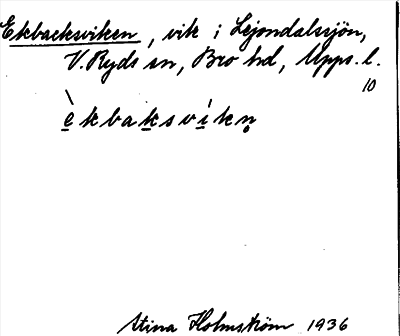 Ekbacksviken, vik i Lejondalssjön,
V. Ryds sn, Bro hd, Upps. l.
10
è̲kbak̲sví̲kn̥
Stina Holmström 1936